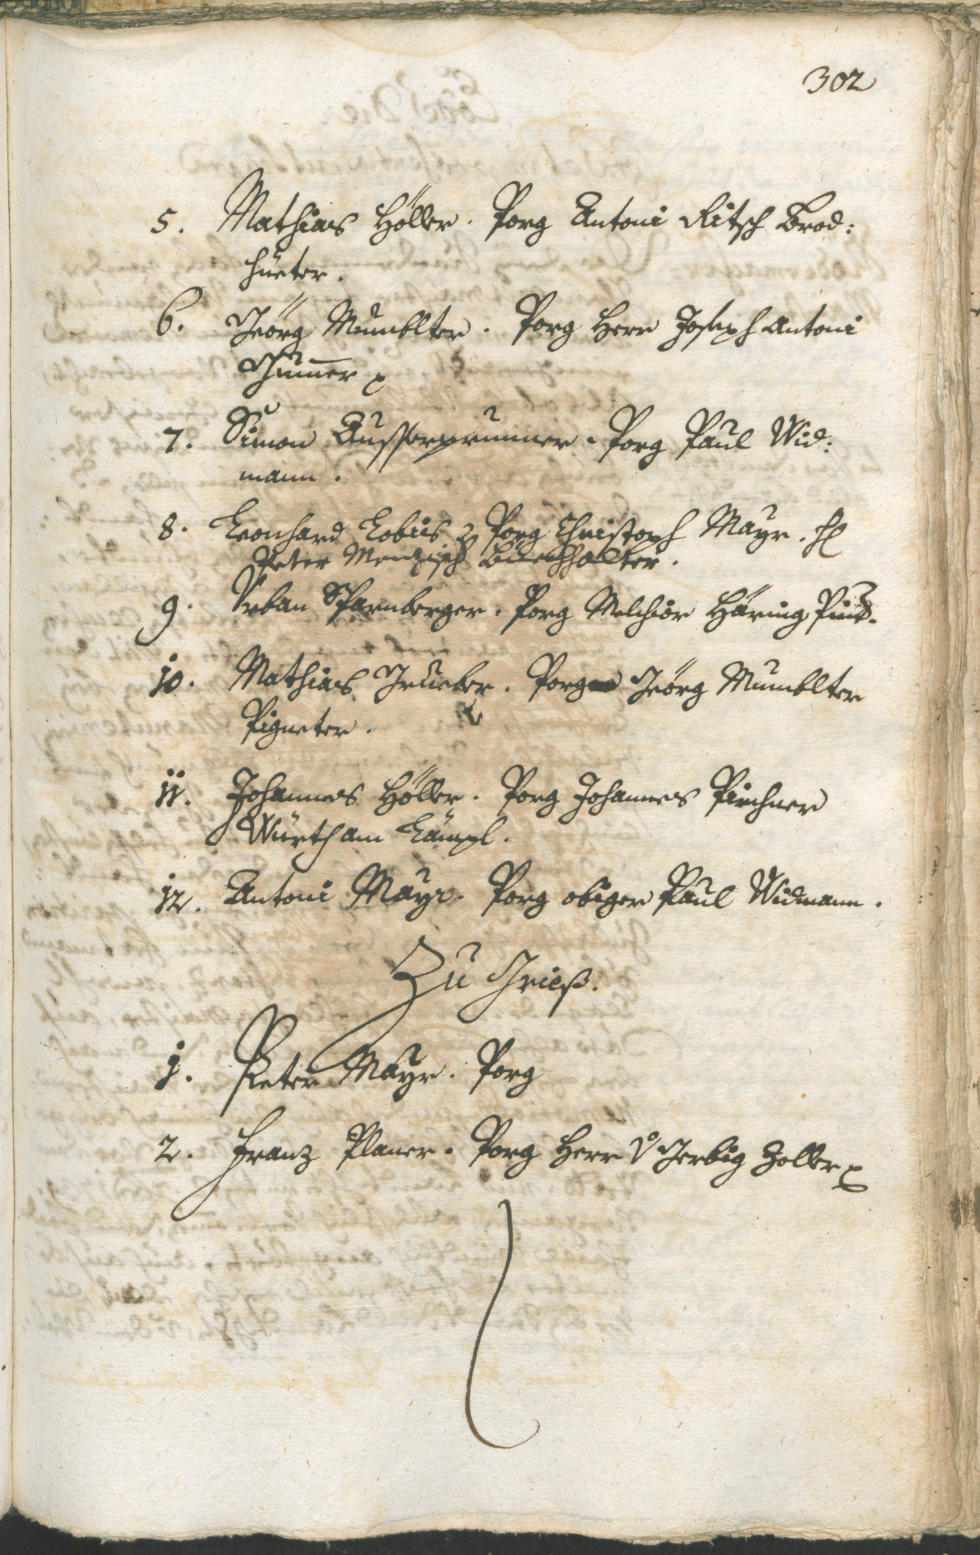 302
5. Mathias Höller. Porg Antoni Ritsch Brod:
hüeter.
6. Jeörg Mumblter. Porg Herr Joseph Antoni
Thuner
7. Simon Ausserprunner. Porg Paul Wid:
mann.
8. Leonhard Lobis. Porg Christoph Mayr.
Peter Menz
9. Urban Spornberger. Porg Melchior Häring
10. Mathias Grueber. Porg Jeörg Mumblter
Pigneter.
11. Johannes Höller. Porg Johannes Pirchner
Würth am Lämpl.
12. Antoni Mayr. Porg obiger Paul Widmann.
Zu Grieß.
1. Peter Mayr. Porg
2. Franz Planer. Porg Herr Zoller